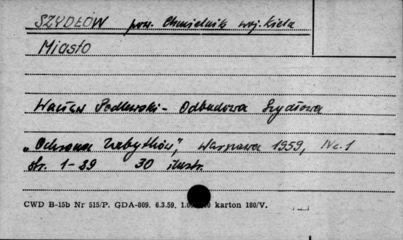 SZYDŁÓW pow. Chmielnik woj. Kiela
Miasto
Wacław Podlewski - Odbudowa Szydłowa
„Ochrona Zabytków”, Warszawa 1959, Nr. 1
str. 1-39 30 ilustr.
CWD B-15b Nr 515/P. GDA-809. 6.3.59. karton 180/V.